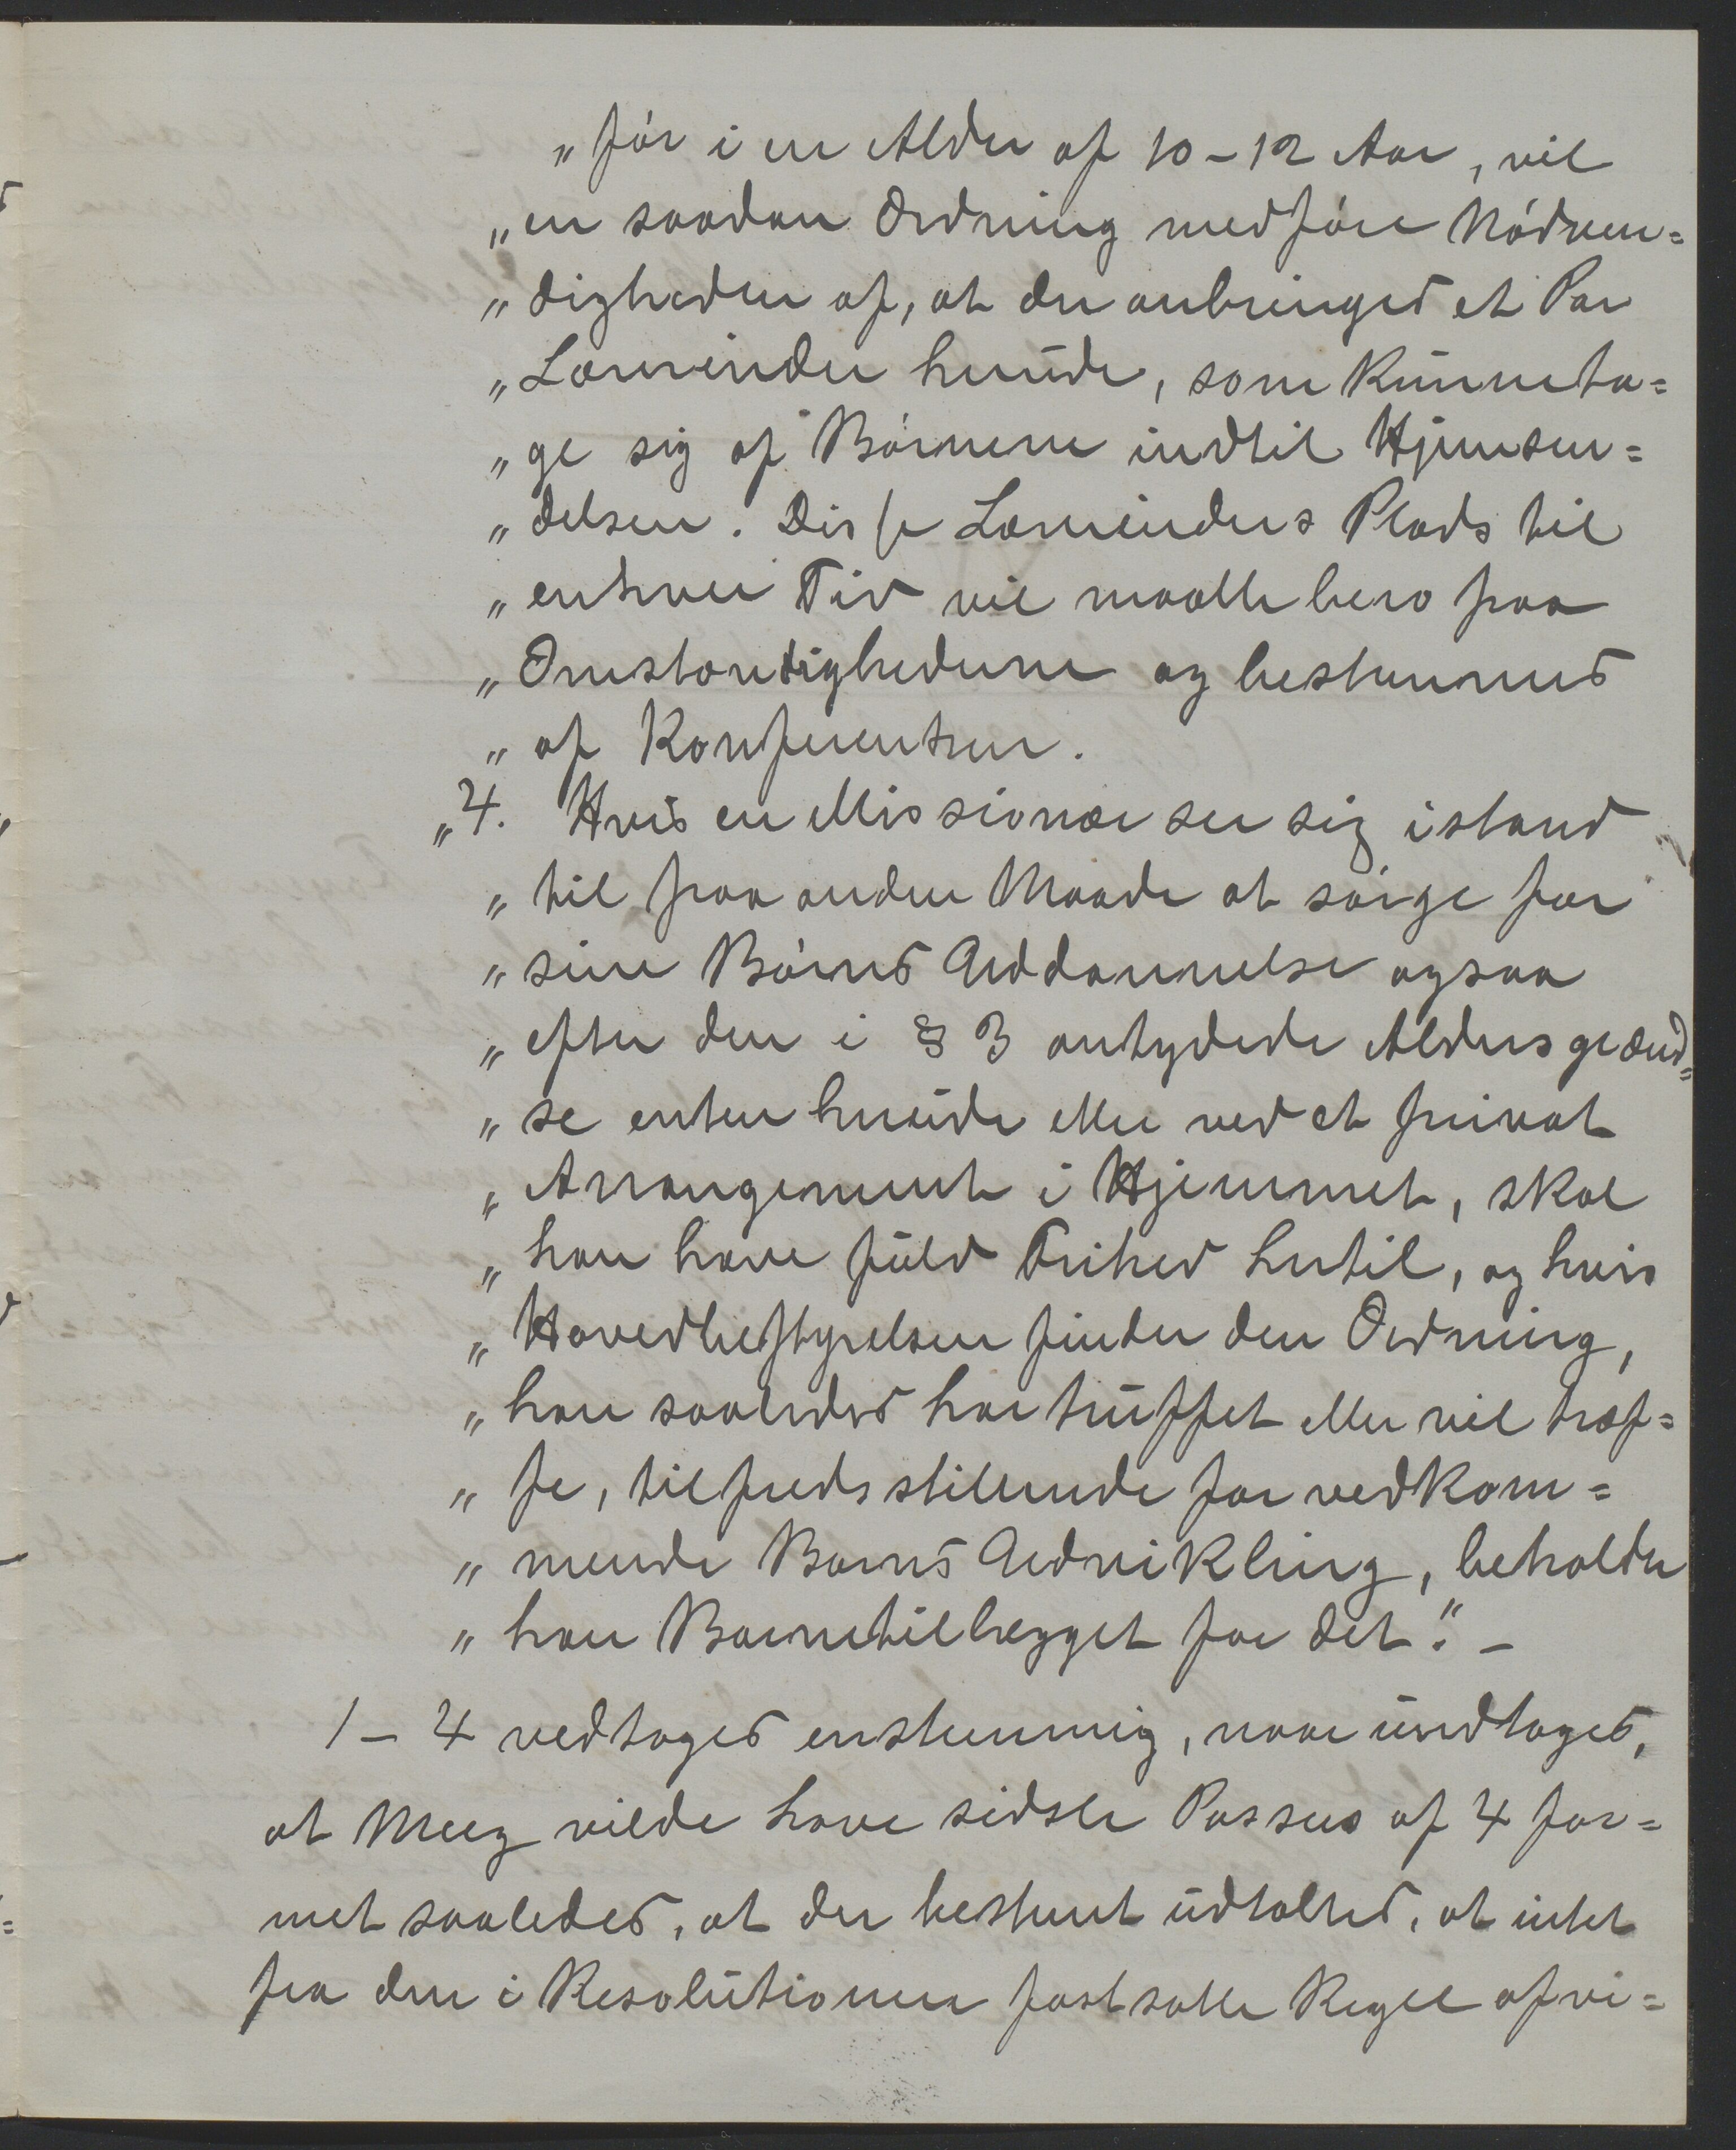 „før i en Alder af 10-12 Aar, vil
„en saadan Ordning medføre Nødven=
„digheden af, at der anbringes et Par
„Lærerinder herude, som kunne ta=
„ge sig af Børnene indtil Hjemsen=
„delsen. Disse Lærerinders Plads til
„enhver Tid vil maatte bero paa
„Omstændighederne og bestemmes
„af Konferentsen.
„4. Hvis en Missionær ser sig istand
„til paa anden Maade at sørge for
„sine Børns Uddannelse ogsaa
„efter den i § 3 antydede Aldersgrænd=
„se enten herude eller ved et privat
„Arrangement i Hjemmet, skal
„han have fuld Frihed hertil, og hvis
„Hovedbestyrelsen finder den Ordning,
„han saaledes har truffet eller vil træf=
„fe, tilfredsstillende for vedkom=
„mende Barns Udvikling, beholder
„han Barnetillægget for det." -
1-4 vedtages enstemmig, naar undtages,
at Meeg vilde have sidste Passus af 4 for=
met saaledes, at der bestemt udtaltes, at intet
fra den i Resolutionen fastsatte Regel afvi=